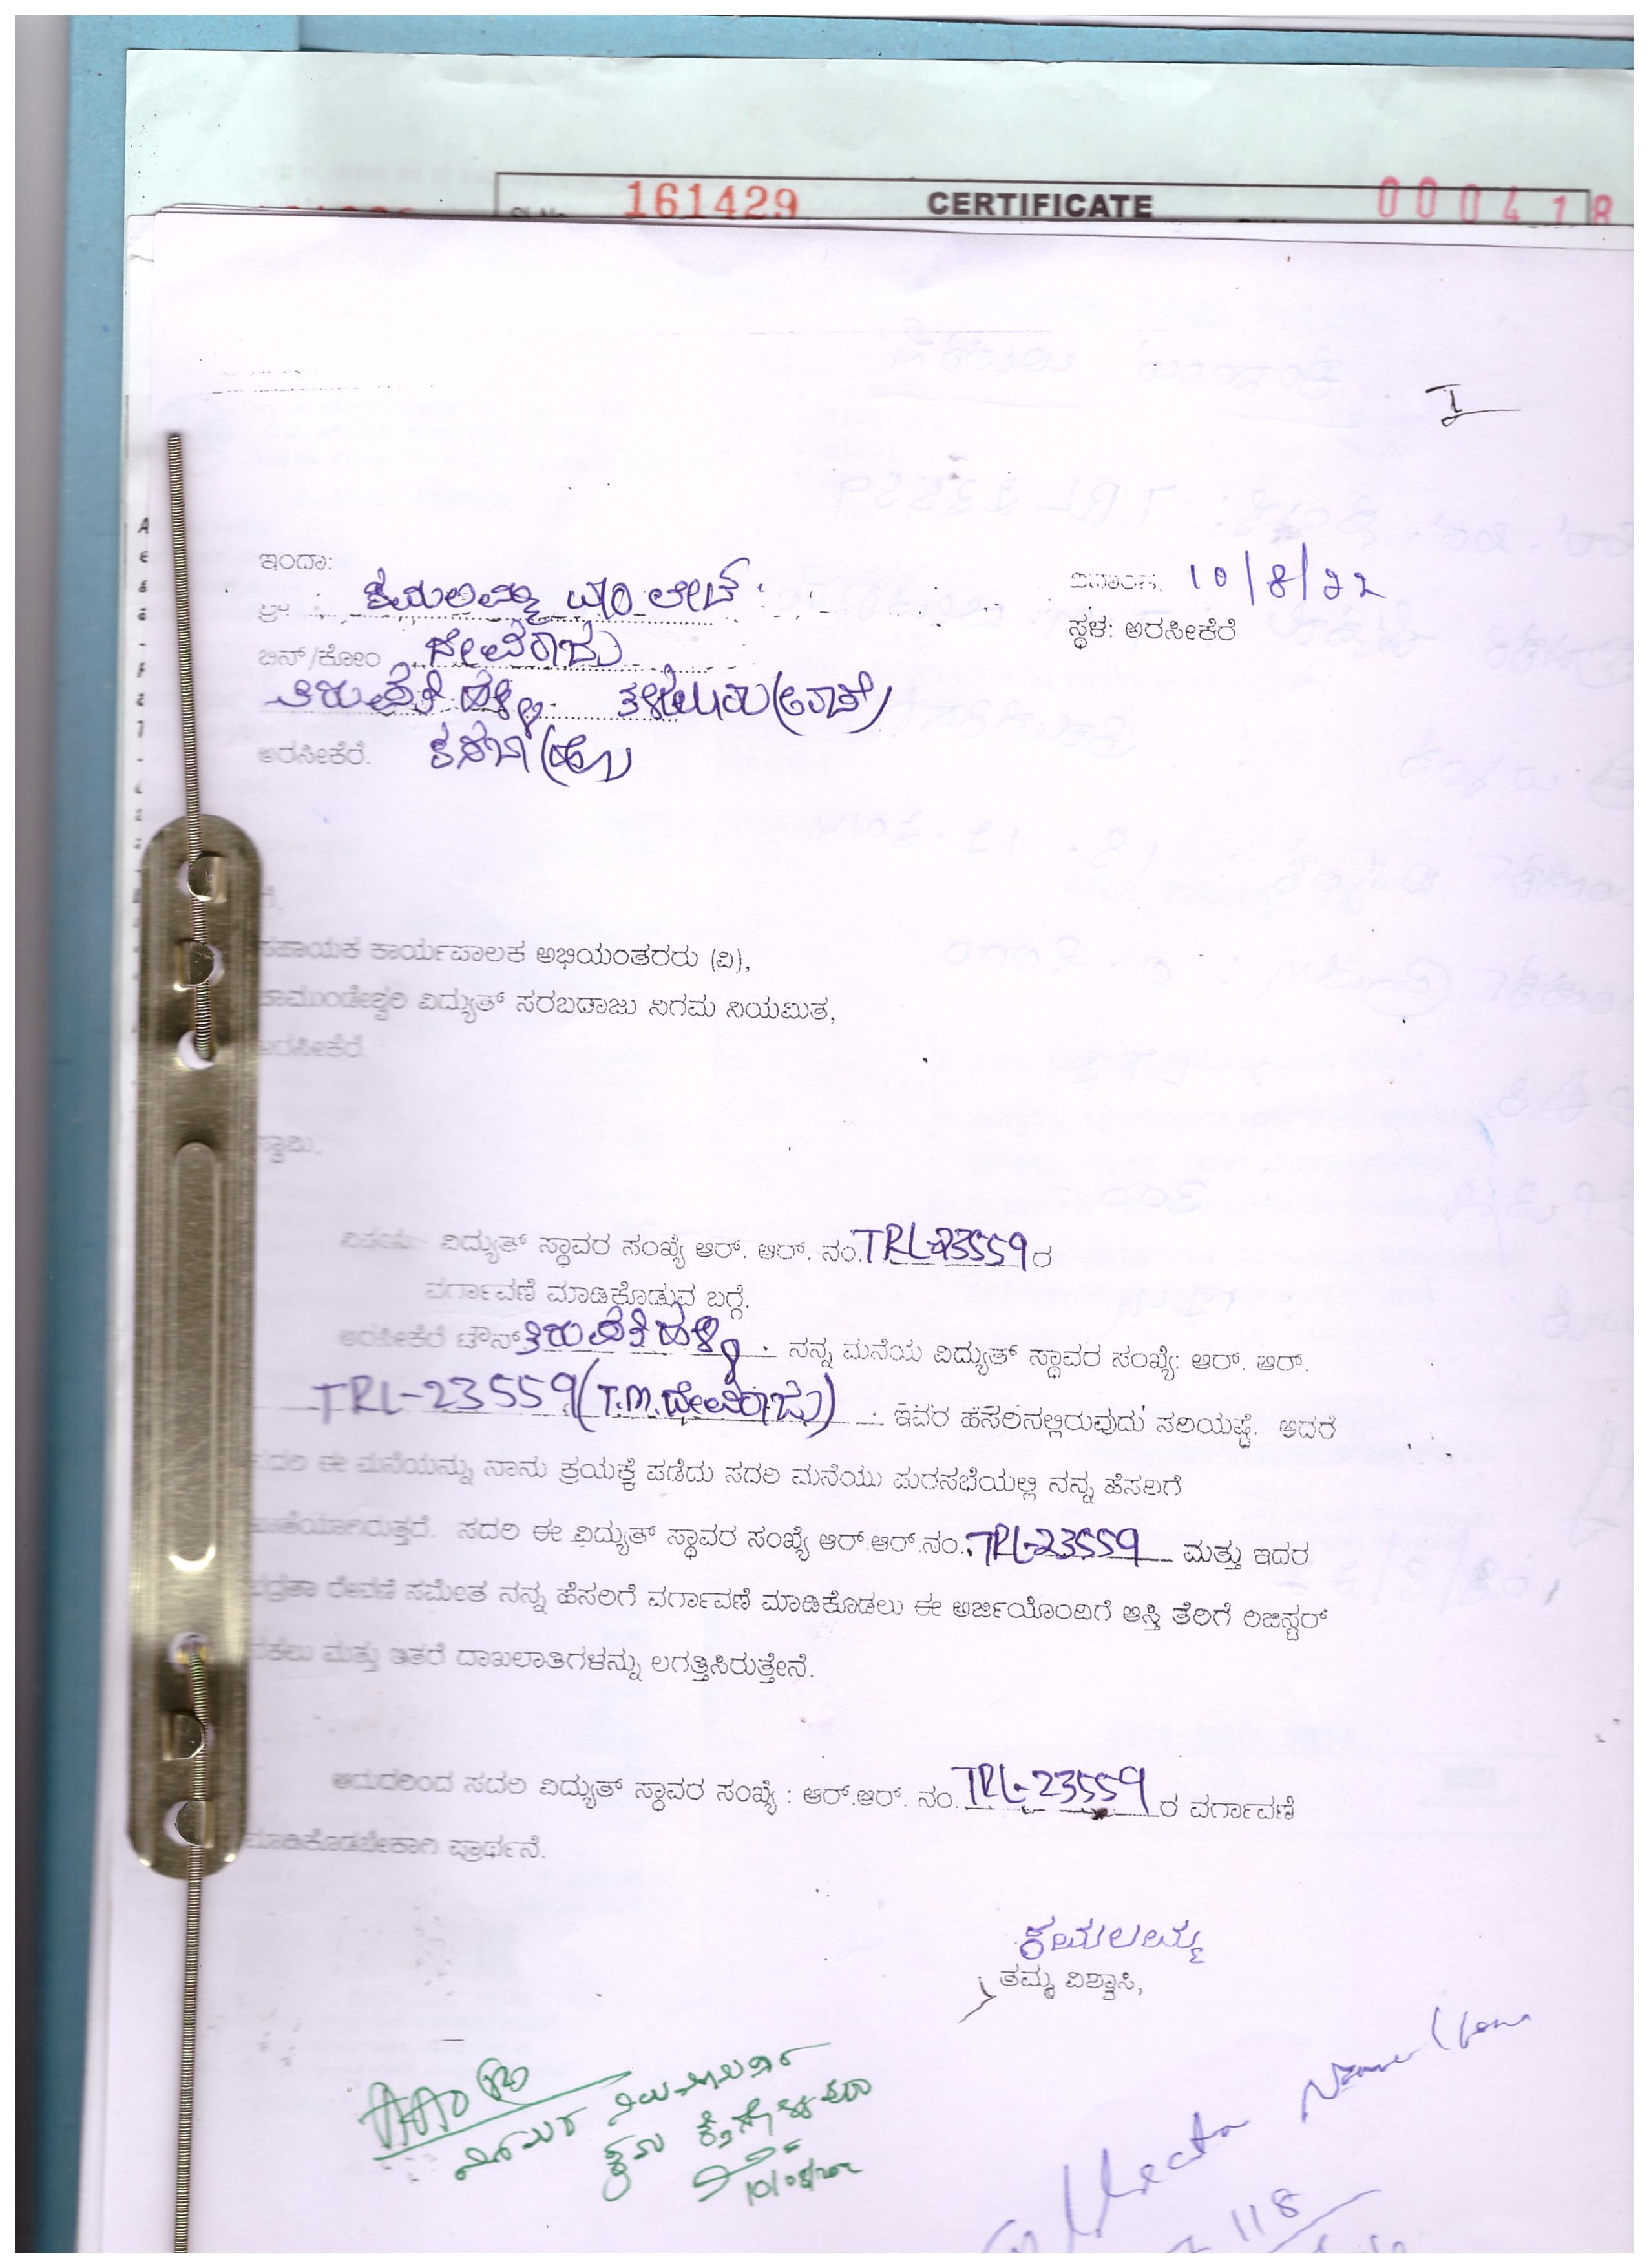 161429 CERTIFICATE 000418
I
ಇಂದಾ:
ಕಮಲಮ್ಮ ಕೋಂ ಲೇಟ್
ದಿನಾಂಕ: 10/8/22
ಸ್ಥಳ: ಅರಸೀಕೆರೆ
ಬಿನ್/ಕೋಂ ದೇವರಾಜು
ತಿರುಪತಿಹಳ್ಳಿ
ಅರಸೀಕೆರೆ. ಕಸಬಾ (ಹೋ)
ಸಹಾಯಕ ಕಾರ್ಯಪಾಲಕ ಅಭಿಯಂತರರು (ವಿ),
ಚಾಮುಂಡೇಶ್ವರಿ ವಿದ್ಯುತ್ ಸರಬರಾಜು ನಿಗಮ ನಿಯಮಿತ,
ಅರಸೀಕೆರೆ.
ಸ್ವಾಮಿ,
ವಿಷಯ:- ವಿದ್ಯುತ್ ಸ್ಥಾವರ ಸಂಖ್ಯೆ ಆರ್. ಆರ್. ನಂ. TRL-23559 ರ
ವರ್ಗಾವಣೆ ಮಾಡಿಕೊಡುವ ಬಗ್ಗೆ.
ಅರಸೀಕೆರೆ ಟೌನ್ ತಿರುಪತಿಹಳ್ಳಿ . ನನ್ನ ಮನೆಯ ವಿದ್ಯುತ್ ಸ್ಥಾವರ ಸಂಖ್ಯೆ: ಆರ್. ಆರ್.
TRL-23559 (T.M.ದೇವರಾಜು) ಇವರ ಹೆಸರಿನಲ್ಲಿರುವುದು ಸರಿಯಷ್ಟೆ. ಆದರೆ
ಸದರಿ ಈ ಮನೆಯನ್ನು ನಾನು ಕ್ರಯಕ್ಕೆ ಪಡೆದು ಸದರಿ ಮನೆಯು ಪುರಸಭೆಯಲ್ಲಿ ನನ್ನ ಹೆಸರಿಗೆ
ಖಾತೆಯಾಗಿರುತ್ತದೆ. ಸದರಿ ಈ ವಿದ್ಯುತ್ ಸ್ಥಾವರ ಸಂಖ್ಯೆ ಆರ್.ಆರ್.ನಂ. TRL-23559 ಮತ್ತು ಇದರ
ಭದ್ರತಾ ಠೇವಣಿ ಸಮೇತ ನನ್ನ ಹೆಸರಿಗೆ ವರ್ಗಾವಣೆ ಮಾಡಿಕೊಡಲು ಈ ಅರ್ಜಿಯೊಂದಿಗೆ ಆಸ್ತಿ ತೆರಿಗೆ ರಿಜಿಸ್ಟರ್
ನಕಲು ಮತ್ತು ಇತರೆ ದಾಖಲಾತಿಗಳನ್ನು ಲಗತ್ತಿಸಿರುತ್ತೇನೆ.
ಆದುದರಿಂದ ಸದರಿ ವಿದ್ಯುತ್ ಸ್ಥಾವರ ಸಂಖ್ಯೆ : ಆರ್.ಆರ್. ನಂ. TRL-23559 ರ ವರ್ಗಾವಣೆ
ಮಾಡಿಕೊಡಬೇಕಾಗಿ ಪ್ರಾರ್ಥನೆ.
ಕಮಲಮ್ಮ
ತಮ್ಮ ವಿಶ್ವಾಸಿ,
118